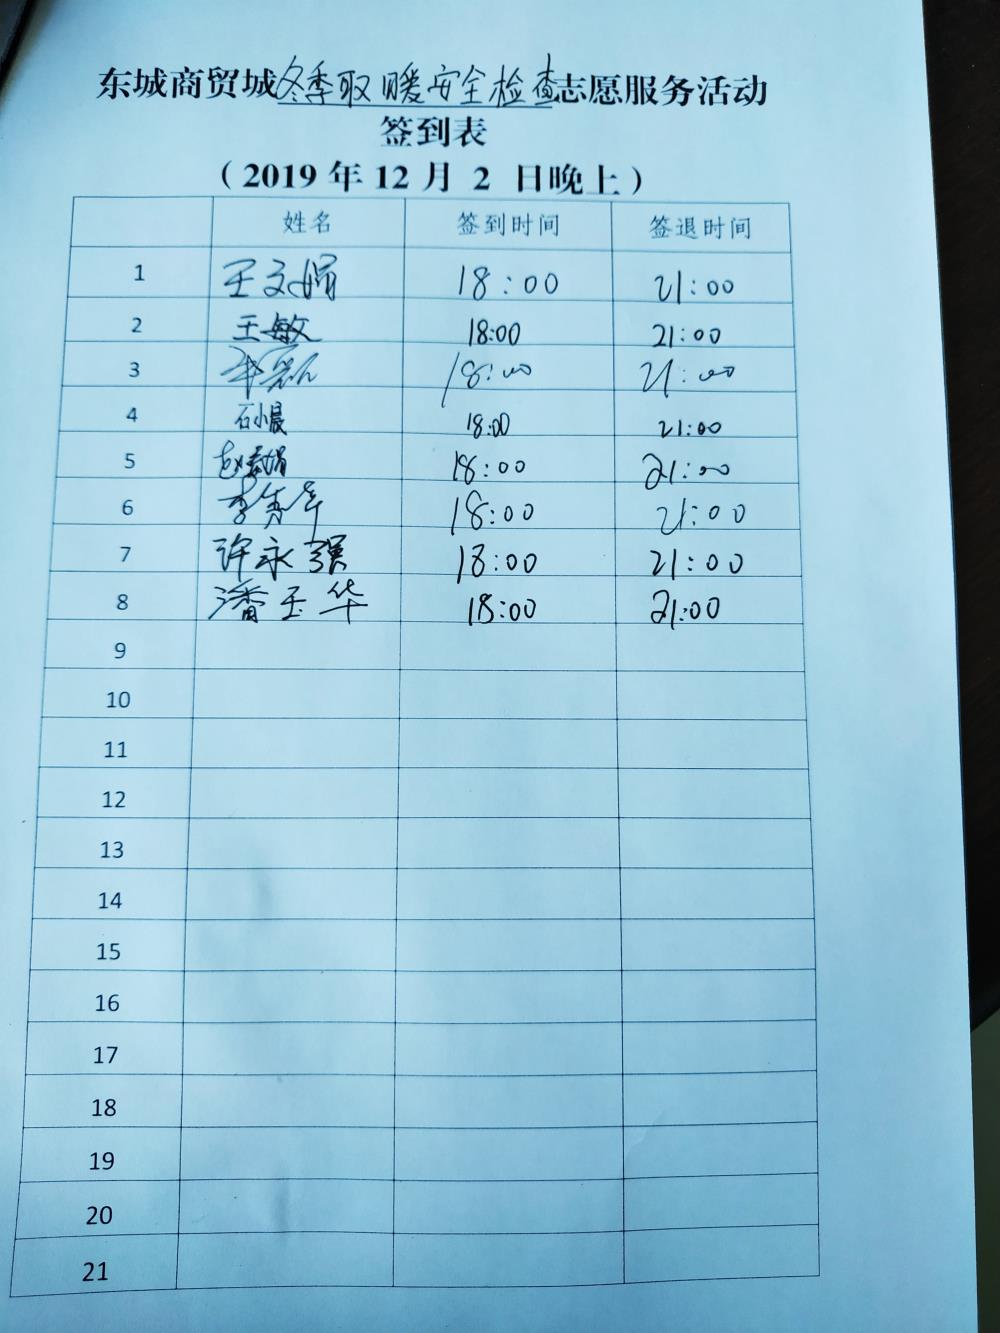 东城商贸城冬季取暖安全检查志愿服务活动
签到表
（2019 年 12 月 2 日晚上）
姓名 签到时间 签退时间
1 王文娟 18:00 21:00
2 王敏 18:00 21:00
3 18:00 21:00
4 石小晨 18:00 21:00
5 赵 娟 18:00 21:00
6 李 18:00 21:00
7 许永强 18:00 21:00
8 潘玉华 18:00 21:00
9
10
11
12
13
14
15
16
17
18
19
20
21